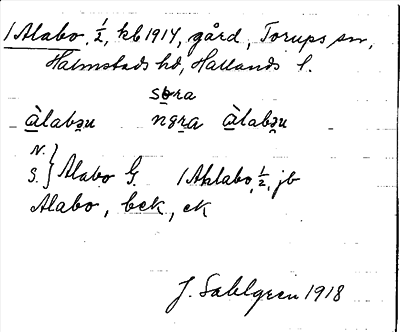 1 Alabo, 1/2, kb 1914, gård, Torups sn,
Halmstads hd, Hallands l.
søra
àlabəu nǫra àlabəu
N.
S. } Alabo G. 1 Ahlabo, 1/2, jb
Alabo, bek, ek
J. Sahlgren 1918